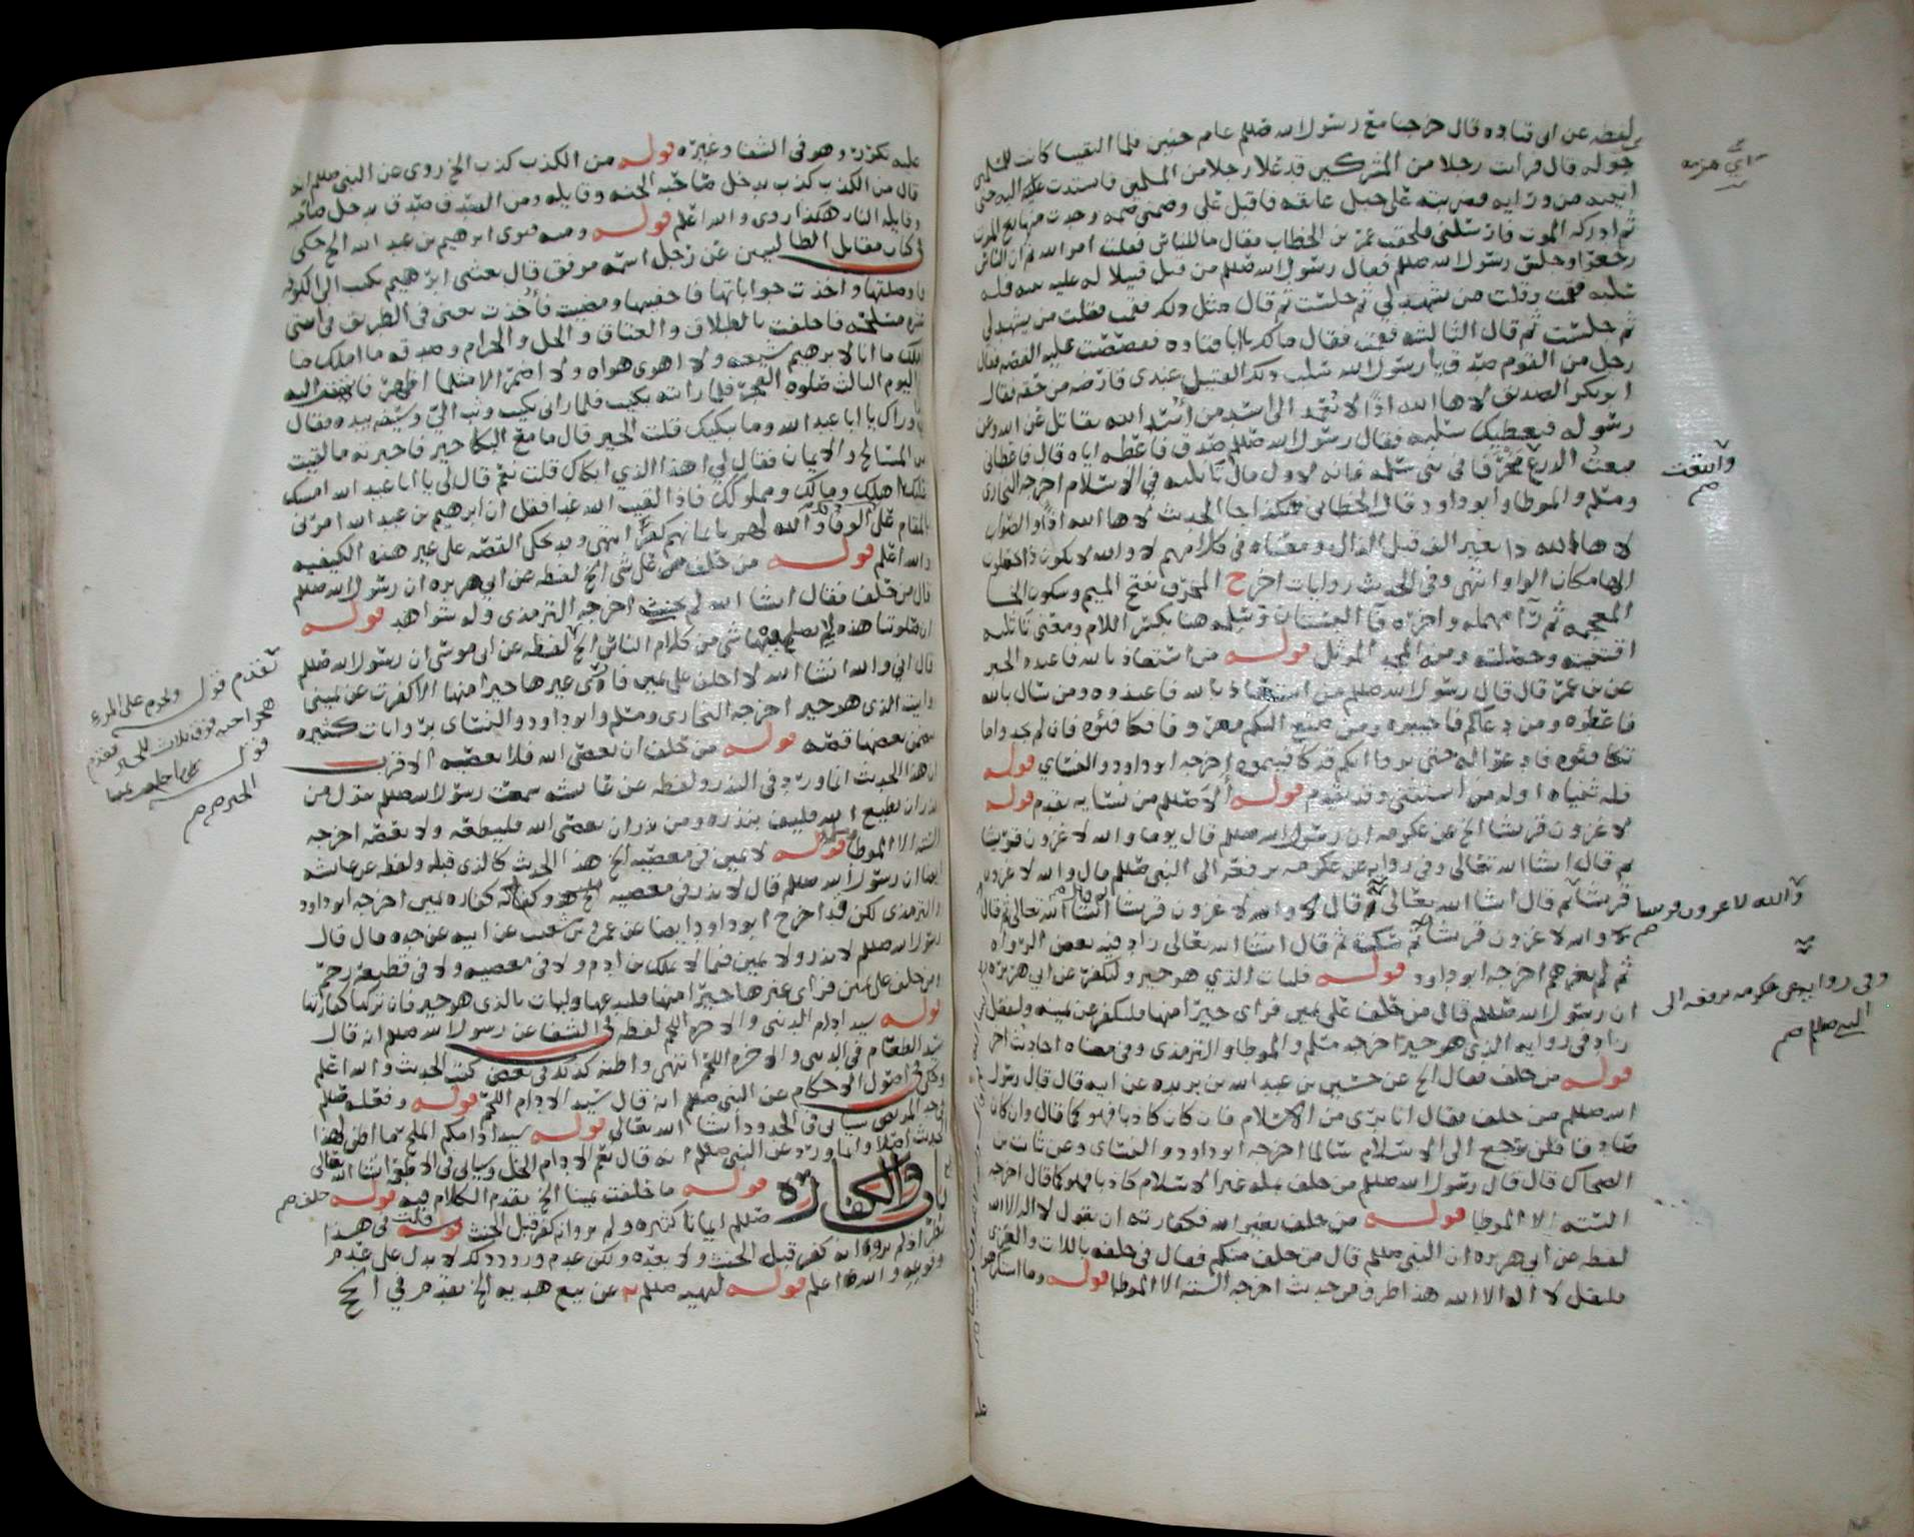 لفظه عن ابي قتاده قال خرجنا مع رسول الله صللم عام حنين فلما التقينا كانت للمسلمين
جوله قال فرايت رجلا من المشركين قد علا رجلا من المسلمين فاستدرت اليه حتى
اتيته من ورايه فضربته على حبل عاتقه فاقبل علي وضمني ضمه وجدت منها ريح الموت
ثم ادركه الموت فارسلني فلحقت عمر بن الخطاب فقال ما للناس فقلت امر الله ثم ان الناس
رجعوا وجلس رسول الله صللم فقال رسول الله صللم من قتل قتيلا له عليه بينه فله
سلبه فقمت وقلت من يشهد لي ثم جلست ثم قال مثل ذلك فقمت فقلت من يشهد لي
ثم جلست ثم قال الثالثه فقمت فقال مالك يا ابا قتاده فقصصت عليه القصه فقال
رجل من القوم صدق يا رسول الله سلب ذلك القتيل عندي فارضه من حقه فقال
ابو بكر الصديق لاها الله اذا لا يعمد الى اسد من أسد الله يقاتل عن الله وعن
رسوله فيعطيك سلبه فقال رسول الله صللم صدق فاعطه اياه قال فاعطاني
فبعت الدرع مخرفا في بني سلمه فانه لاول مال تاثلته في الاسلام اخرجه البخاري
ومسلم والموطا وابو داود قال الخطابي هكذا جا الحديث لاها الله اذا والصواب
لاها الله ذا بغير الف قبل الذال ومعناه في كلامهم لا والله لا يكون ذا يجعلون
الها مكان الواو انتهى وفي الحديث روايات اخر ح المخرف بفتح الميم وسكون الخا
المعجمه ثم رآ مهمله واخره فآ البستان وسلمه هنا بكسر اللام ومعنى تاثلته
اقتنيته وحصلته ومنه المجد الموثل قوله من استعاذ بالله فاعيذوه الخبر
عن بن عمر قال قال رسول الله صللم من استعاذ بالله فاعيذوه ومن سال بالله
فاعطوه ومن دعاكم فاجيبوه ومن صنع اليكم معروفا فكافئوه فان لم تجدوا ما
تكافئوه فادعوا له حتى تروا انكم قد كافيتموه اخرجه ابو داود والنساي قوله
فله ثنياه اوله من استثنى وقد تقدم قوله الا صللم من نسايه تقدم قوله
لاغزون قريشا الخ عن عكرمه ان رسول الله صللم قال يوما والله لاغزون قريشا
ثم قال انشا الله تعالى وفي روايه عن عكرمه يرفعه الى النبي صللم قال والله لاغزون
قريشا ثم قال انشا الله تعالى ثم قال والله لاغزون قريشا انشا الله تعالى ثم قال
والله لاغزون قريشا ثم سكت ثم قال انشا الله تعالى زاد فيه بعض الرواه
ثم لم يغزهم اخرجه ابو داود قوله فليات الذي هو خير وليكفر عن ابي هريره
ان رسول الله صللم قال من حلف على يمين فراى خيرا منها فليكفر عن يمينه وليفعل
زاد في روايه الذي هو خير اخرجه مسلم والموطا والترمذي وفي معناه احاديث اخر
قوله من حلف فقال الخ عن حسين بن عبد الله بن بريده عن ابيه قال قال رسول
الله صللم من حلف فقال انا بري من الاسلام فان كان كاذبا فهو كما قال وان كان
صادقا فلن يرجع الى الاسلام سالما اخرجه ابو داود والنساي وعن ثابت بن
الضحاك قال قال رسول الله صللم من حلف بمله غير الاسلام كاذبا فهو كما قال اخرجه
الستة الا الموطا قوله من حلف بغير الله فكفارته ان يقول لا اله الا الله
لفظه عن ابي هريره ان النبي صللم قال من حلف منكم فقال في حلفه باللات والعزى
فليقل لا اله الا الله هذا طرف من حديث اخرجه الستة الا الموطا قوله وما استكرهوا
اي هزيمه
وابتعت
والله لاغزون قريشا
وفي روايه عن عكرمه يرفعه الى
النبي صللم
عليه تكررت وهو في الشفا وغيره قوله من الكذب كذب الخ روي عن النبي صللم انه
قال من الكذب كذب يدخل صاحبه الجنه وقايله ومن الصدق صدق يدخل صاحبه
وقايله النار هكذا روي والله اعلم قوله ومنه فتوى ابرهيم بن عبد الله الخ حكى
في كتاب مقاتل الطالبيين عن رجل اسمه موفق قال بعثني ابرهيم بكتب الى الكوفه
فاوصلتها واخذت جواباتها فاخفيتها ومضيت فأخذت يعني في الطريق
فاحلفت بالطلاق والعتاق والحل والحرام وصدقه ما املك
ما انا لابرهيم شيعه ولا اهوى هواه ولا اضمر الا مثلما اظهر
اليوم الثالث صلوه الفجر فلما رايته بكيت فلما راني بكيت وثب الي وسيفه بيده فقال
ما وراك يا ابا عبد الله وما يبكيك قلت الخير قال ما مع البكا خير فاخبرته ما لقيت
من المسالح والايمان فقال لي اهذا الذي ابكاك قلت نعم قال لي يا ابا عبد الله امسك
عليك اهلك ومالك ومملوكك فاذا لقيت الله غدا فقل ان ابرهيم بن عبد الله امرني
بالمقام على الوفا والله بايمانهم كفر انتهى وقد حكى القصه على غير هذه الكيفيه
والله اعلم قوله من حلف على شي الخ لفظه عن ابي هريره ان رسول الله صللم
قال من حلف فقال انشا الله لم يحنث اخرجه الترمذي وله شواهد قوله
ان صلوتنا هذه لا يصلح فيها شي من كلام الناس الخ لفظه عن ابي موسى ان رسول الله صللم
قال اني والله انشا الله لا احلف على يمين فارى غيرها خيرا منها الا كفرت عن يميني
واتيت الذي هو خير اخرجه البخاري ومسلم وابو داود والنساي بروايات كثيره
تضمن بعضها قصه قوله من حلف ان يعصي الله فلا يعصه الاقرب
ان هذا الحديث انما ورد في النذر ولفظه عن عائشه سمعت رسول الله صللم يقول من
نذر ان يطيع الله فليف بنذره ومن نذر ان يعصي الله فليطعه ولا يعصه اخرجه
الستة الا الموطا قوله لا يمين في معصيه الخ هذا الحديث كالذي قبله ولفظه عن عائشه
ايضا ان رسول الله صللم قال لا نذر في معصيه وكفارته كفاره يمين اخرجه ابو داود
والترمذي لكن قد اخرج ابو داود ايضا عن عمرو بن شعيب عن ابيه عن جده قال قال
رسول الله صللم لا نذر ولا يمين فيما لا يملك بن ادم ولا في معصيه ولا في قطيعة رحم
ومن حلف على يمين فراى غيرها خيرا منها فليدعها وليات بالذي هو خير فان تركها كفارتها
قوله سيد ادام الدنيا والاخره اللحم لفظه في الشفا عن رسول الله صللم انه قال
سيد الطعام في الدنيا والاخره اللحم انتهى واظنه كذلك في بعض كتب الحديث والله اعلم
وحكى في اصول الاحكام عن النبي صللم انه قال سيد الادام اللحم قوله وفعله صللم
في حد المريض سياتي في الحدود أنشا الله تعالى قوله سيد ادامكم الملح مما اظن لهذا
الحديث اصلا وانما ورد عن النبي صللم انه قال نعم الادام الخل وسياتي في الاطعمه انشا الله تعالى
باب والكفاره قوله ما خلفت يمينا الخ تقدم الكلام فيه قوله حلف
صللم ايمانا كثيره ولم يروا انه كفر قبل الحنث قوله قلت في هذا
نظر اذ لم يرووا انه كفر قبل الحنث ولا بعده ولكن عدم ورود ذلك لا يدل على عدم
وقوعه والله اعلم قوله لنهيه صللم عن بيع هديه الخ تقدم في الحج
تقدم قوله ويحرم على المرء
هجر اخيه فوق ثلاث للخبر وتقدم
قوله
الخبر